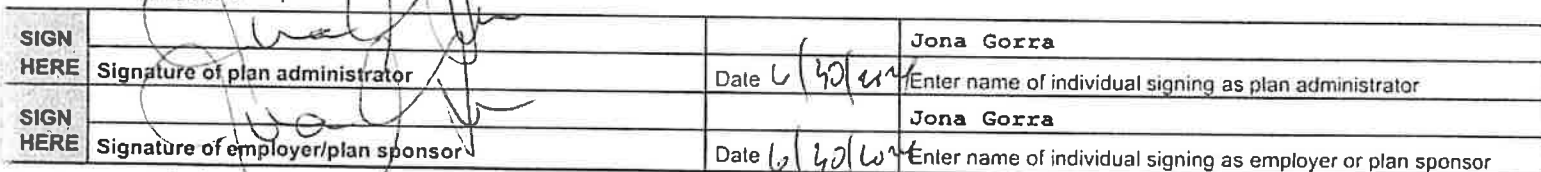 SIGN HERE
Jona Gorra
Signature of plan administrator Date Enter name of individual signing as plan administrator
SIGN HERE
Jona Gorra
Signature of employer/plan sponsor Date Enter name of individual signing as employer or plan sponsor